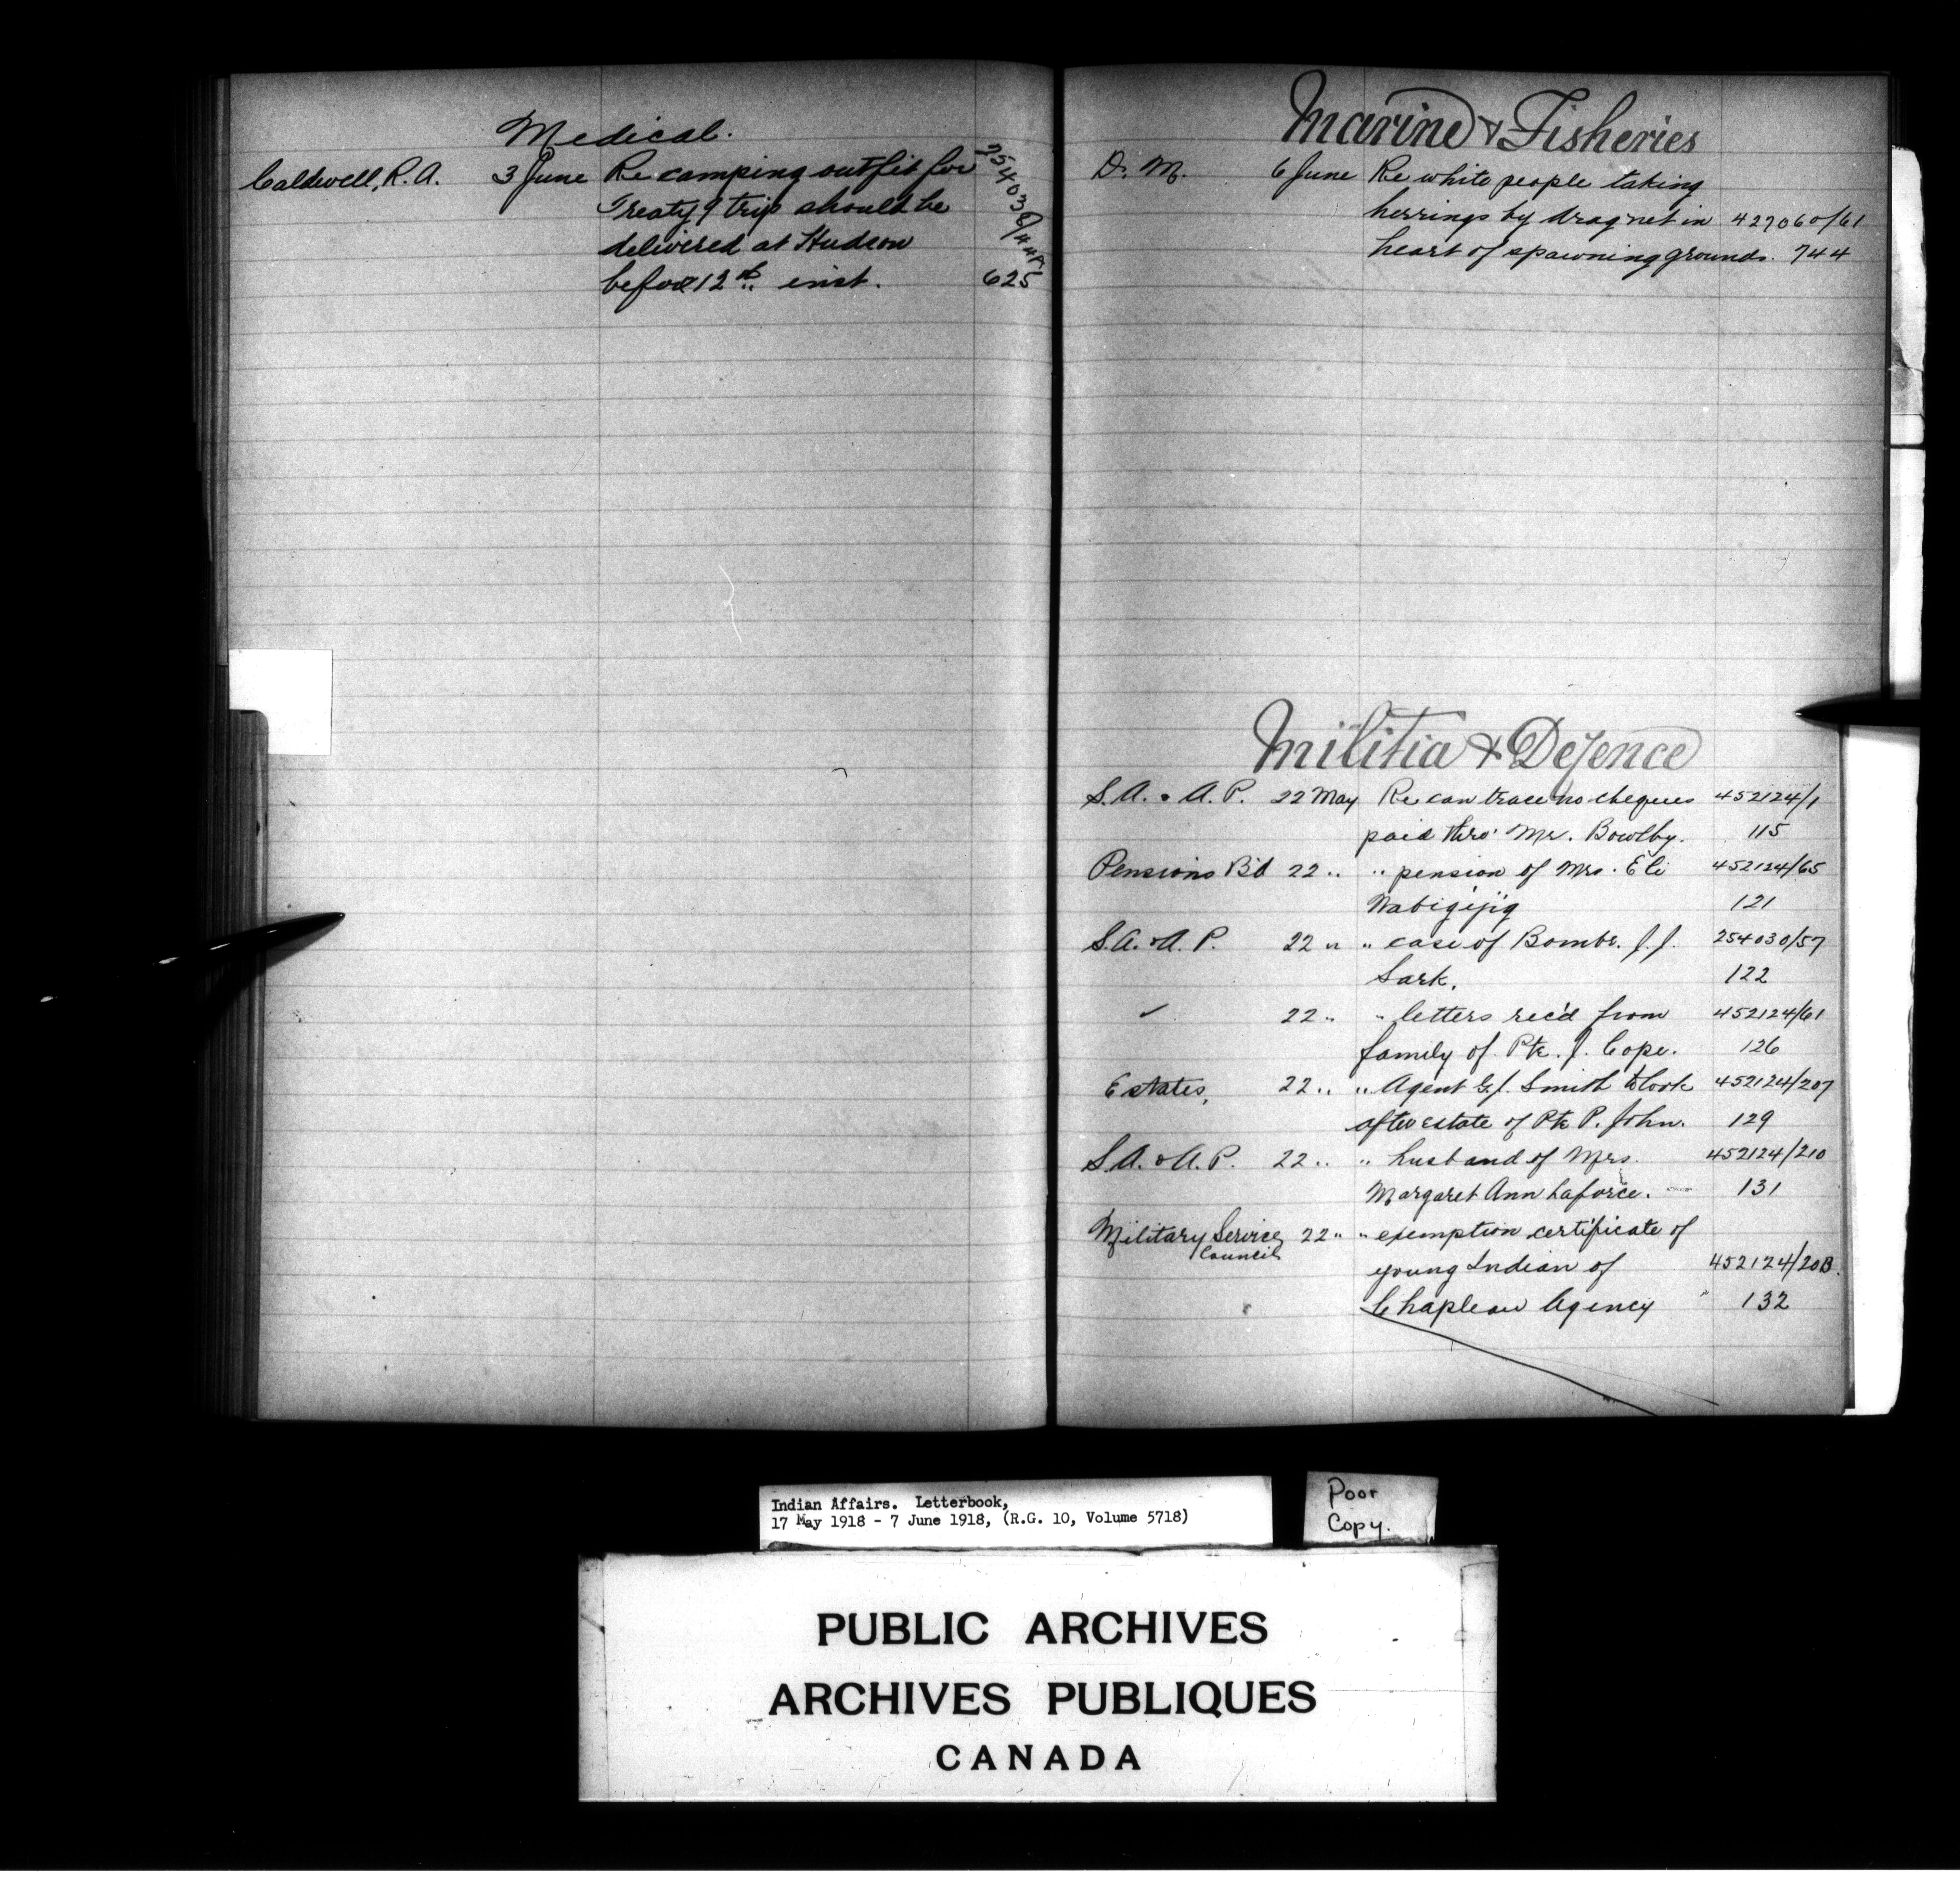 Medical.
Caldwell, R.A. 3 June Re camping outfit for 254036/448
Treaty 9 trip should be
delivered at Hudson
before 12th inst. 625
Marine & Fisheries
D. M. 6 June Re white people taking
herrings by drag net in 427060/61
heart of spawning grounds. 744
Militia & Defence
S.A. & A.P. 22 May Re can trace no cheques 452124/1
paid thro' Mr. Bowlby. 115
Pensions B'd 22 " " pension of Mrs. Eli 452124/65
Wabigijig 121
S.A. & A.P. 22 " " case of Bombr. J.J. 254030/57
Sark. 122
" 22 " " letters rec'd from 452124/61
family of Pte. J. Cope. 126
Estates, 22 " " Agent G.J. Smith to look 452124/207
after estate of Pte P. John. 129
S.A. & A.P. 22 " " husband of Mrs. 452124/210
Margaret Ann Laforce. 131
Military Service 22 " " exemption certificate of
Council
young Indian of 452124/20B.
Chapleau Agency " 132
Indian Affairs. Letterbook,
17 May 1918 - 7 June 1918, (R.G. 10, Volume 5718)
Poor
Copy.
PUBLIC ARCHIVES
ARCHIVES PUBLIQUES
CANADA